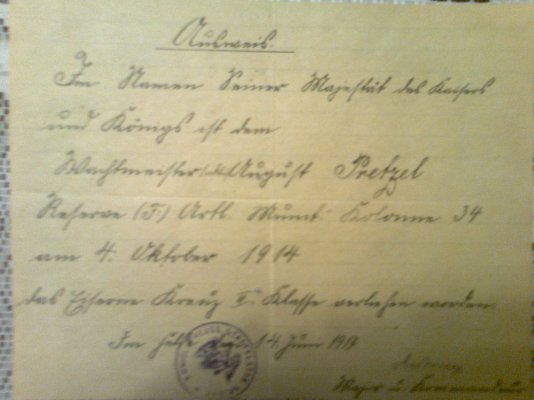 Ausweis.
Im Namen Seiner Majestät des Kaisers
und Königs ist dem
Wachtmeister August Pretzel
Reserve (F.) Artl. Munit. Kolonne 34
am 4. Oktober 1914
das Eiserne Kreuz II. Klasse verliehen worden.
Im Felde 14. Juni 1917
Major u. Kommandeur